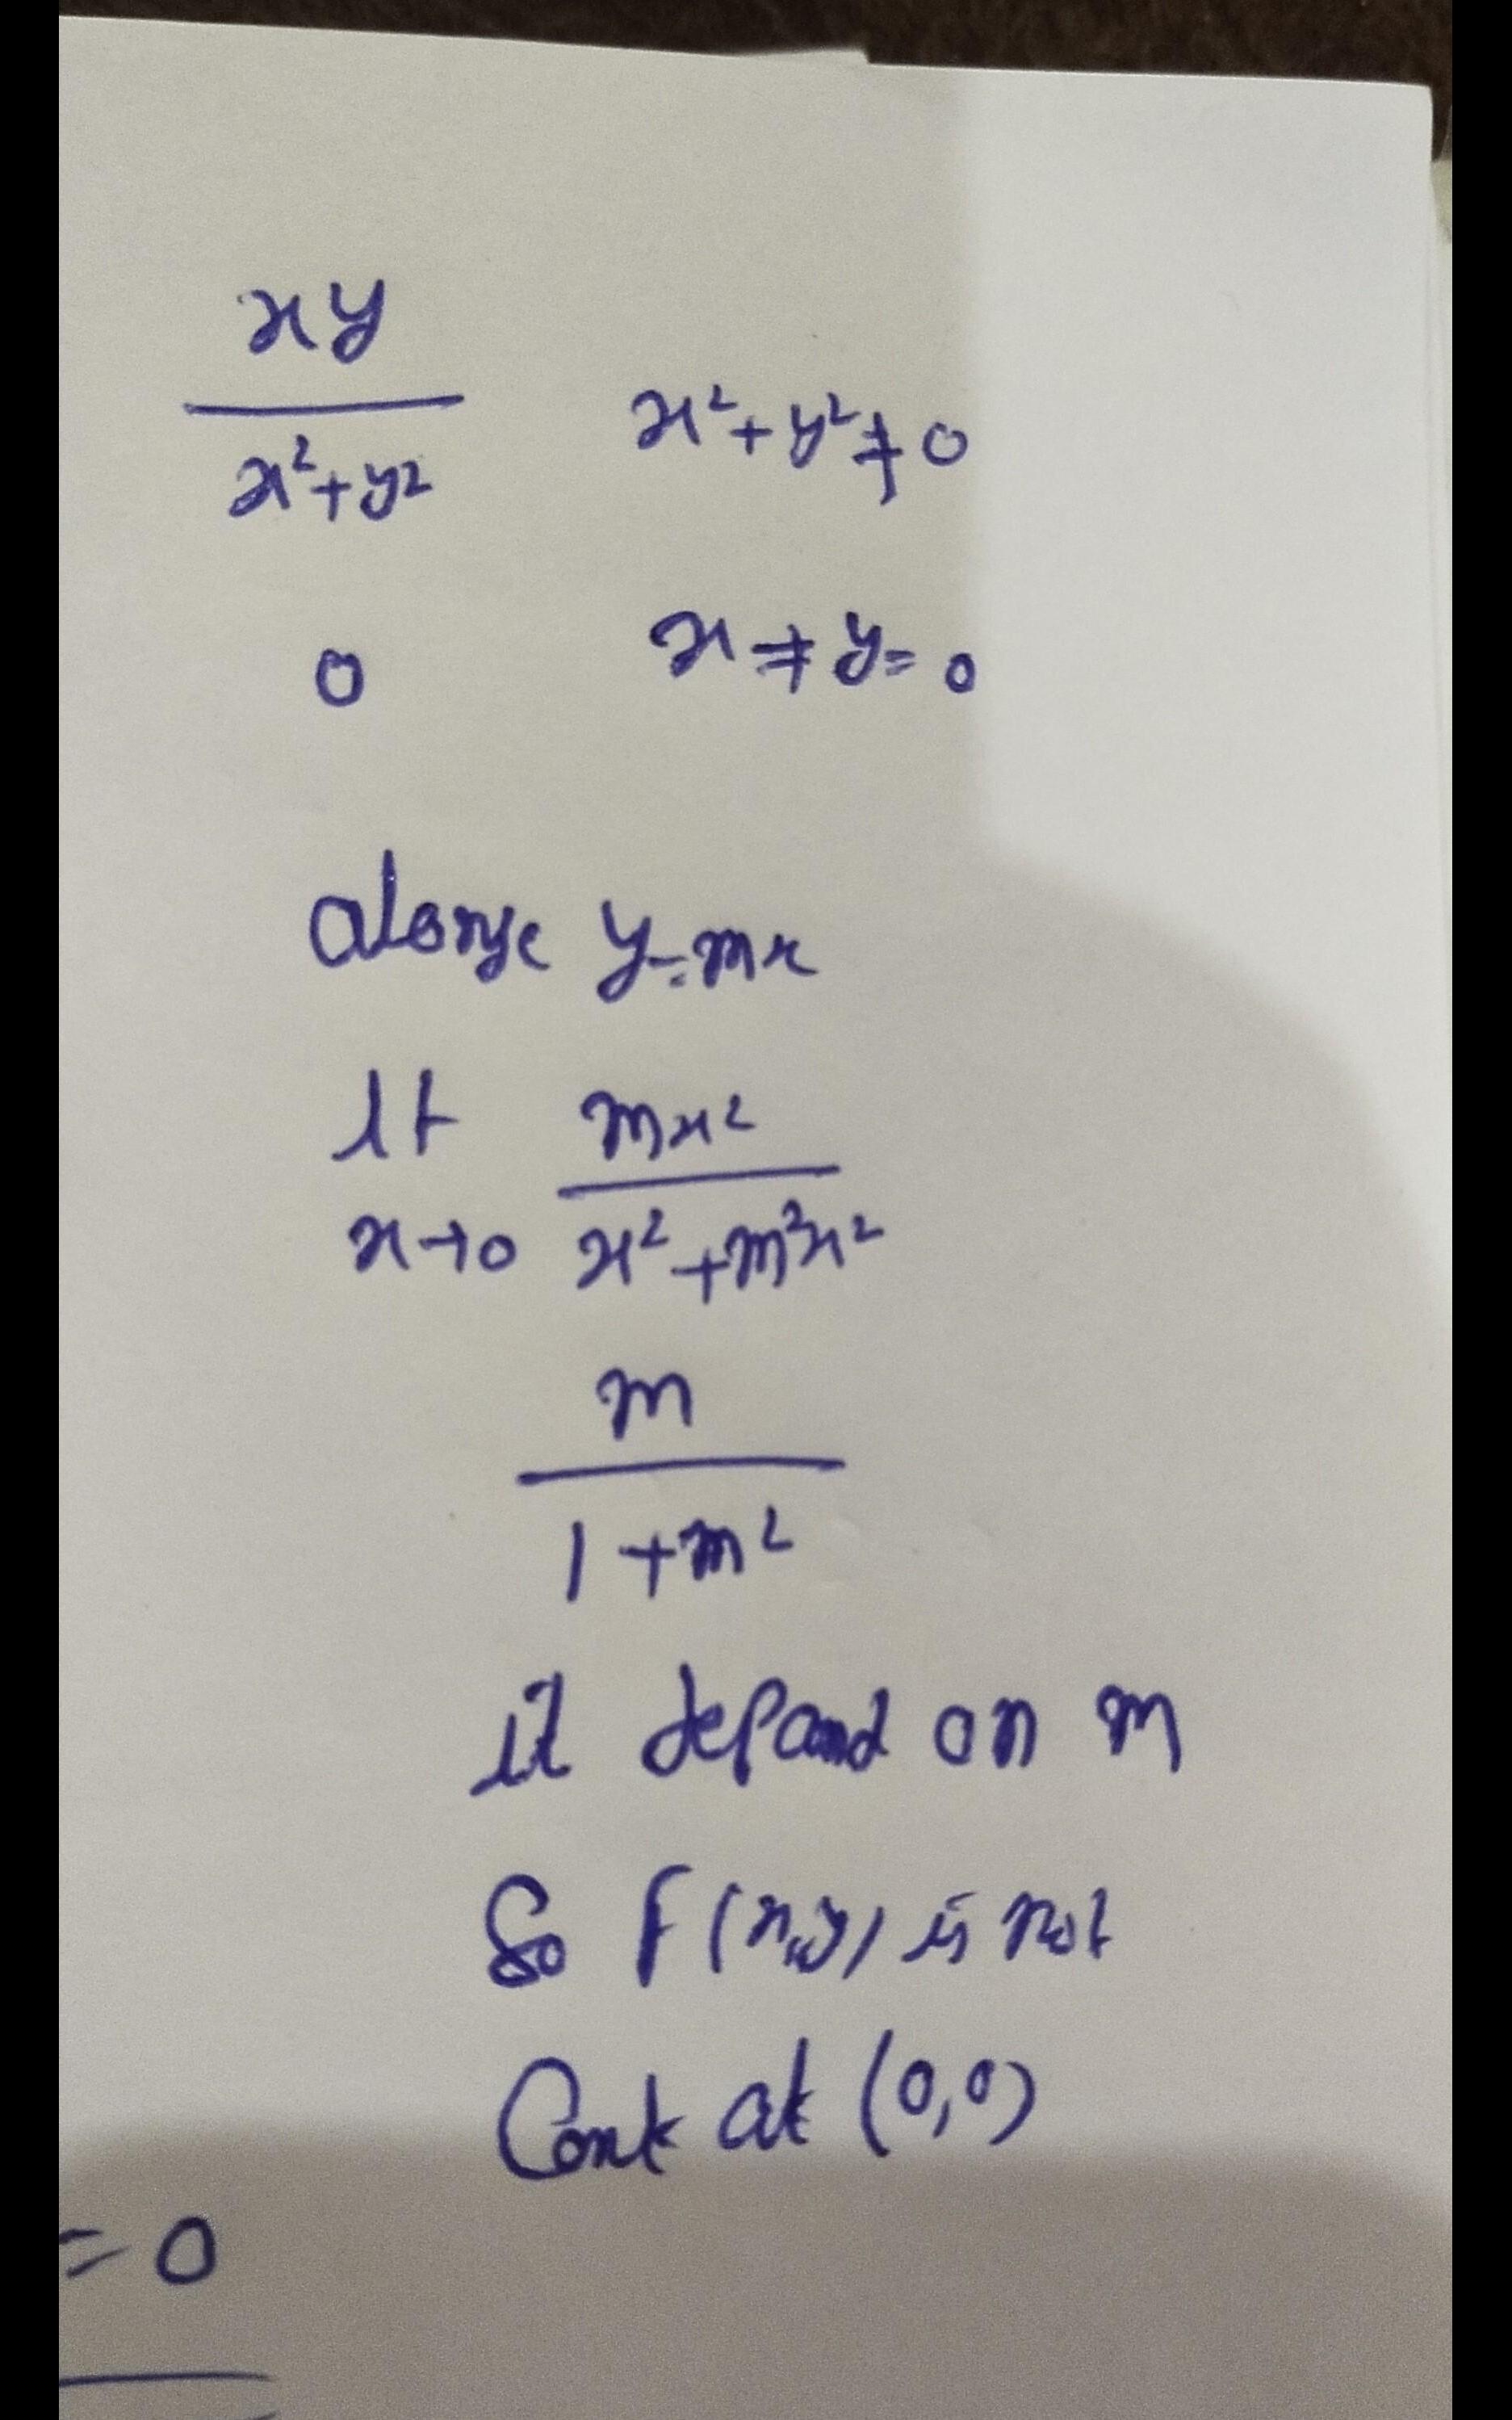 xy
x²+y²
x²+y²≠0
0
x≠y=0
along y=mx
lt mx²
x→0 x²+m²x²
m
1+m²
it depand on m
So f(x,y) is not
Cont at (0,0)
=0